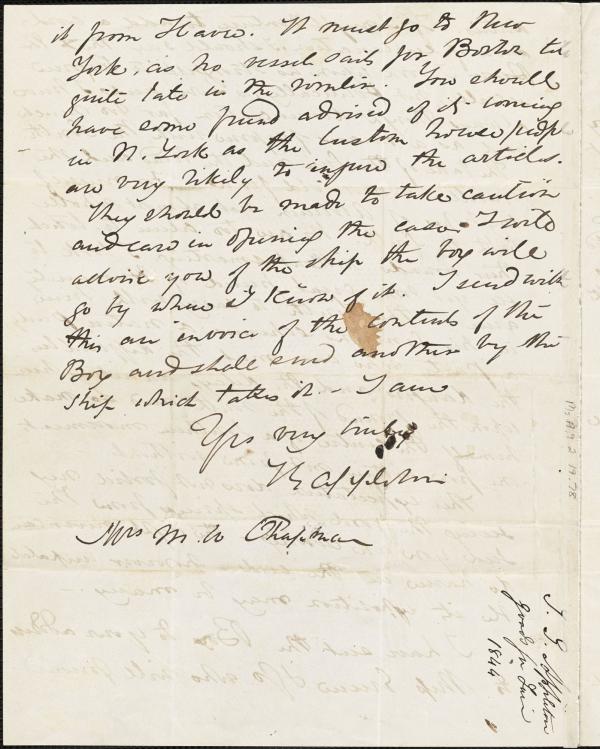 it from Havre. It must go to New
York, as no vessel sails for Boston til
quite late in the month. You should
have some friend advised of its coming
in N. York as the Custom house people
are very likely to injure the articles.
They should be made to take caution
and care in opening the case. I will
advise you of the ship the box will
go by when I know of it. I send with
this an invoice of the contents of the
Box and shall send another by the
Ship which takes it. - I am
Yrs very truly
T G Appleton
Mrs M. W Chapman
Ms A.9.2.19.78
T. G. Appleton
goods for Fair
1844